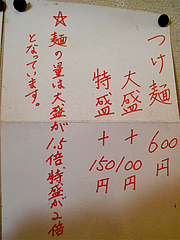 つけ麺 600円
大盛 +100円
特盛 +150円
☆麺の量は大盛が1.5倍、特盛が2倍
となっています。